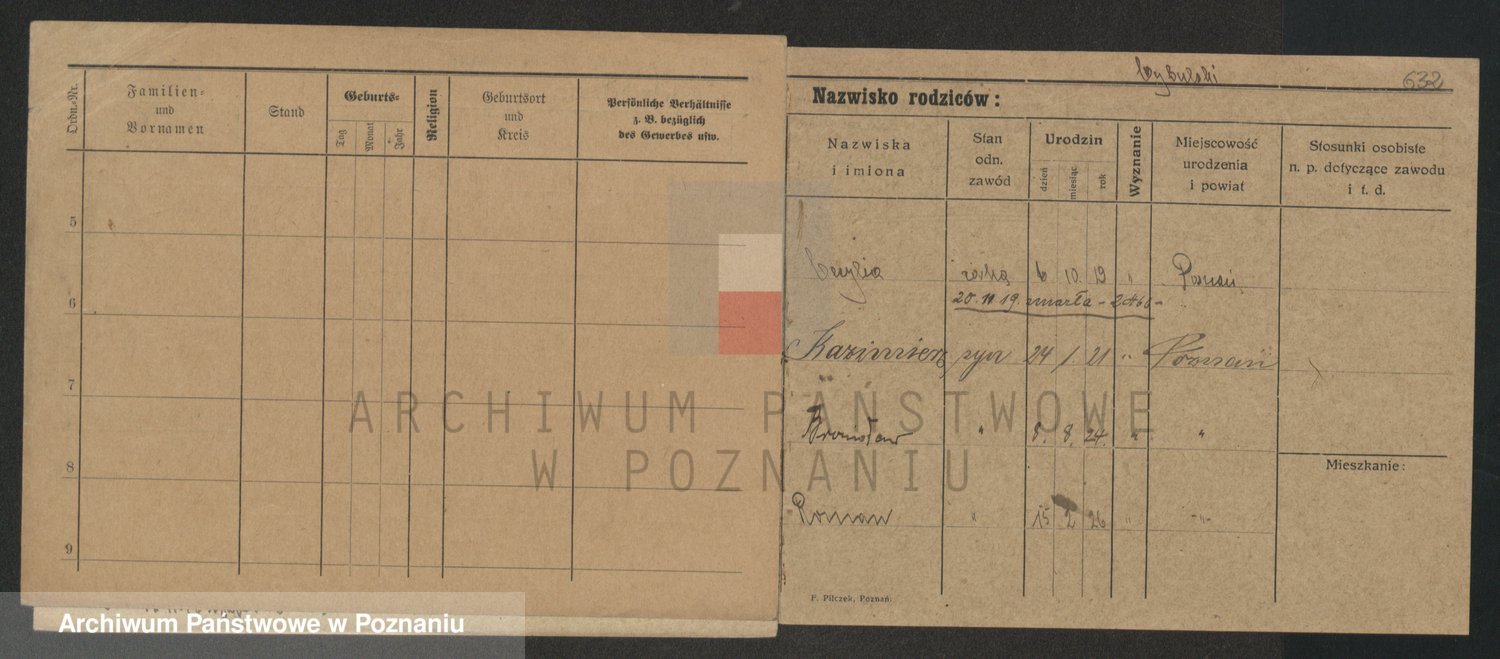 Ordn.-Nr.
Familien-
und
Vornamen
Stand
Geburts-
Tag
Monat
Jahr
Religion
Geburtsort
und
Kreis
Persönliche Verhältnisse
z. B. bezüglich
des Gewerbes usw.
5
6
7
8
9
Cybulski
632
Nazwisko rodziców:
Nazwiska
i imiona
Stan
odn.
zawód
Urodzin
dzień
miesiąc
rok
Wyznanie
Miejscowość
urodzenia
i powiat
Stosunki osobiste
n. p. dotyczące zawodu
i t. d.
Cecylia 6 10. 19 " Poznań
20. 11 19. zmarła
Kazimierz syn 24 / 21 " Poznań
Bronisław " 8. 8. 24. " "
Mieszkanie:
Roman " 15 2 26 " -"-
F. Pilczek, Poznań.
ARCHIWUM PAŃSTWOWE
W POZNANIU
Archiwum Państwowe w Poznaniu